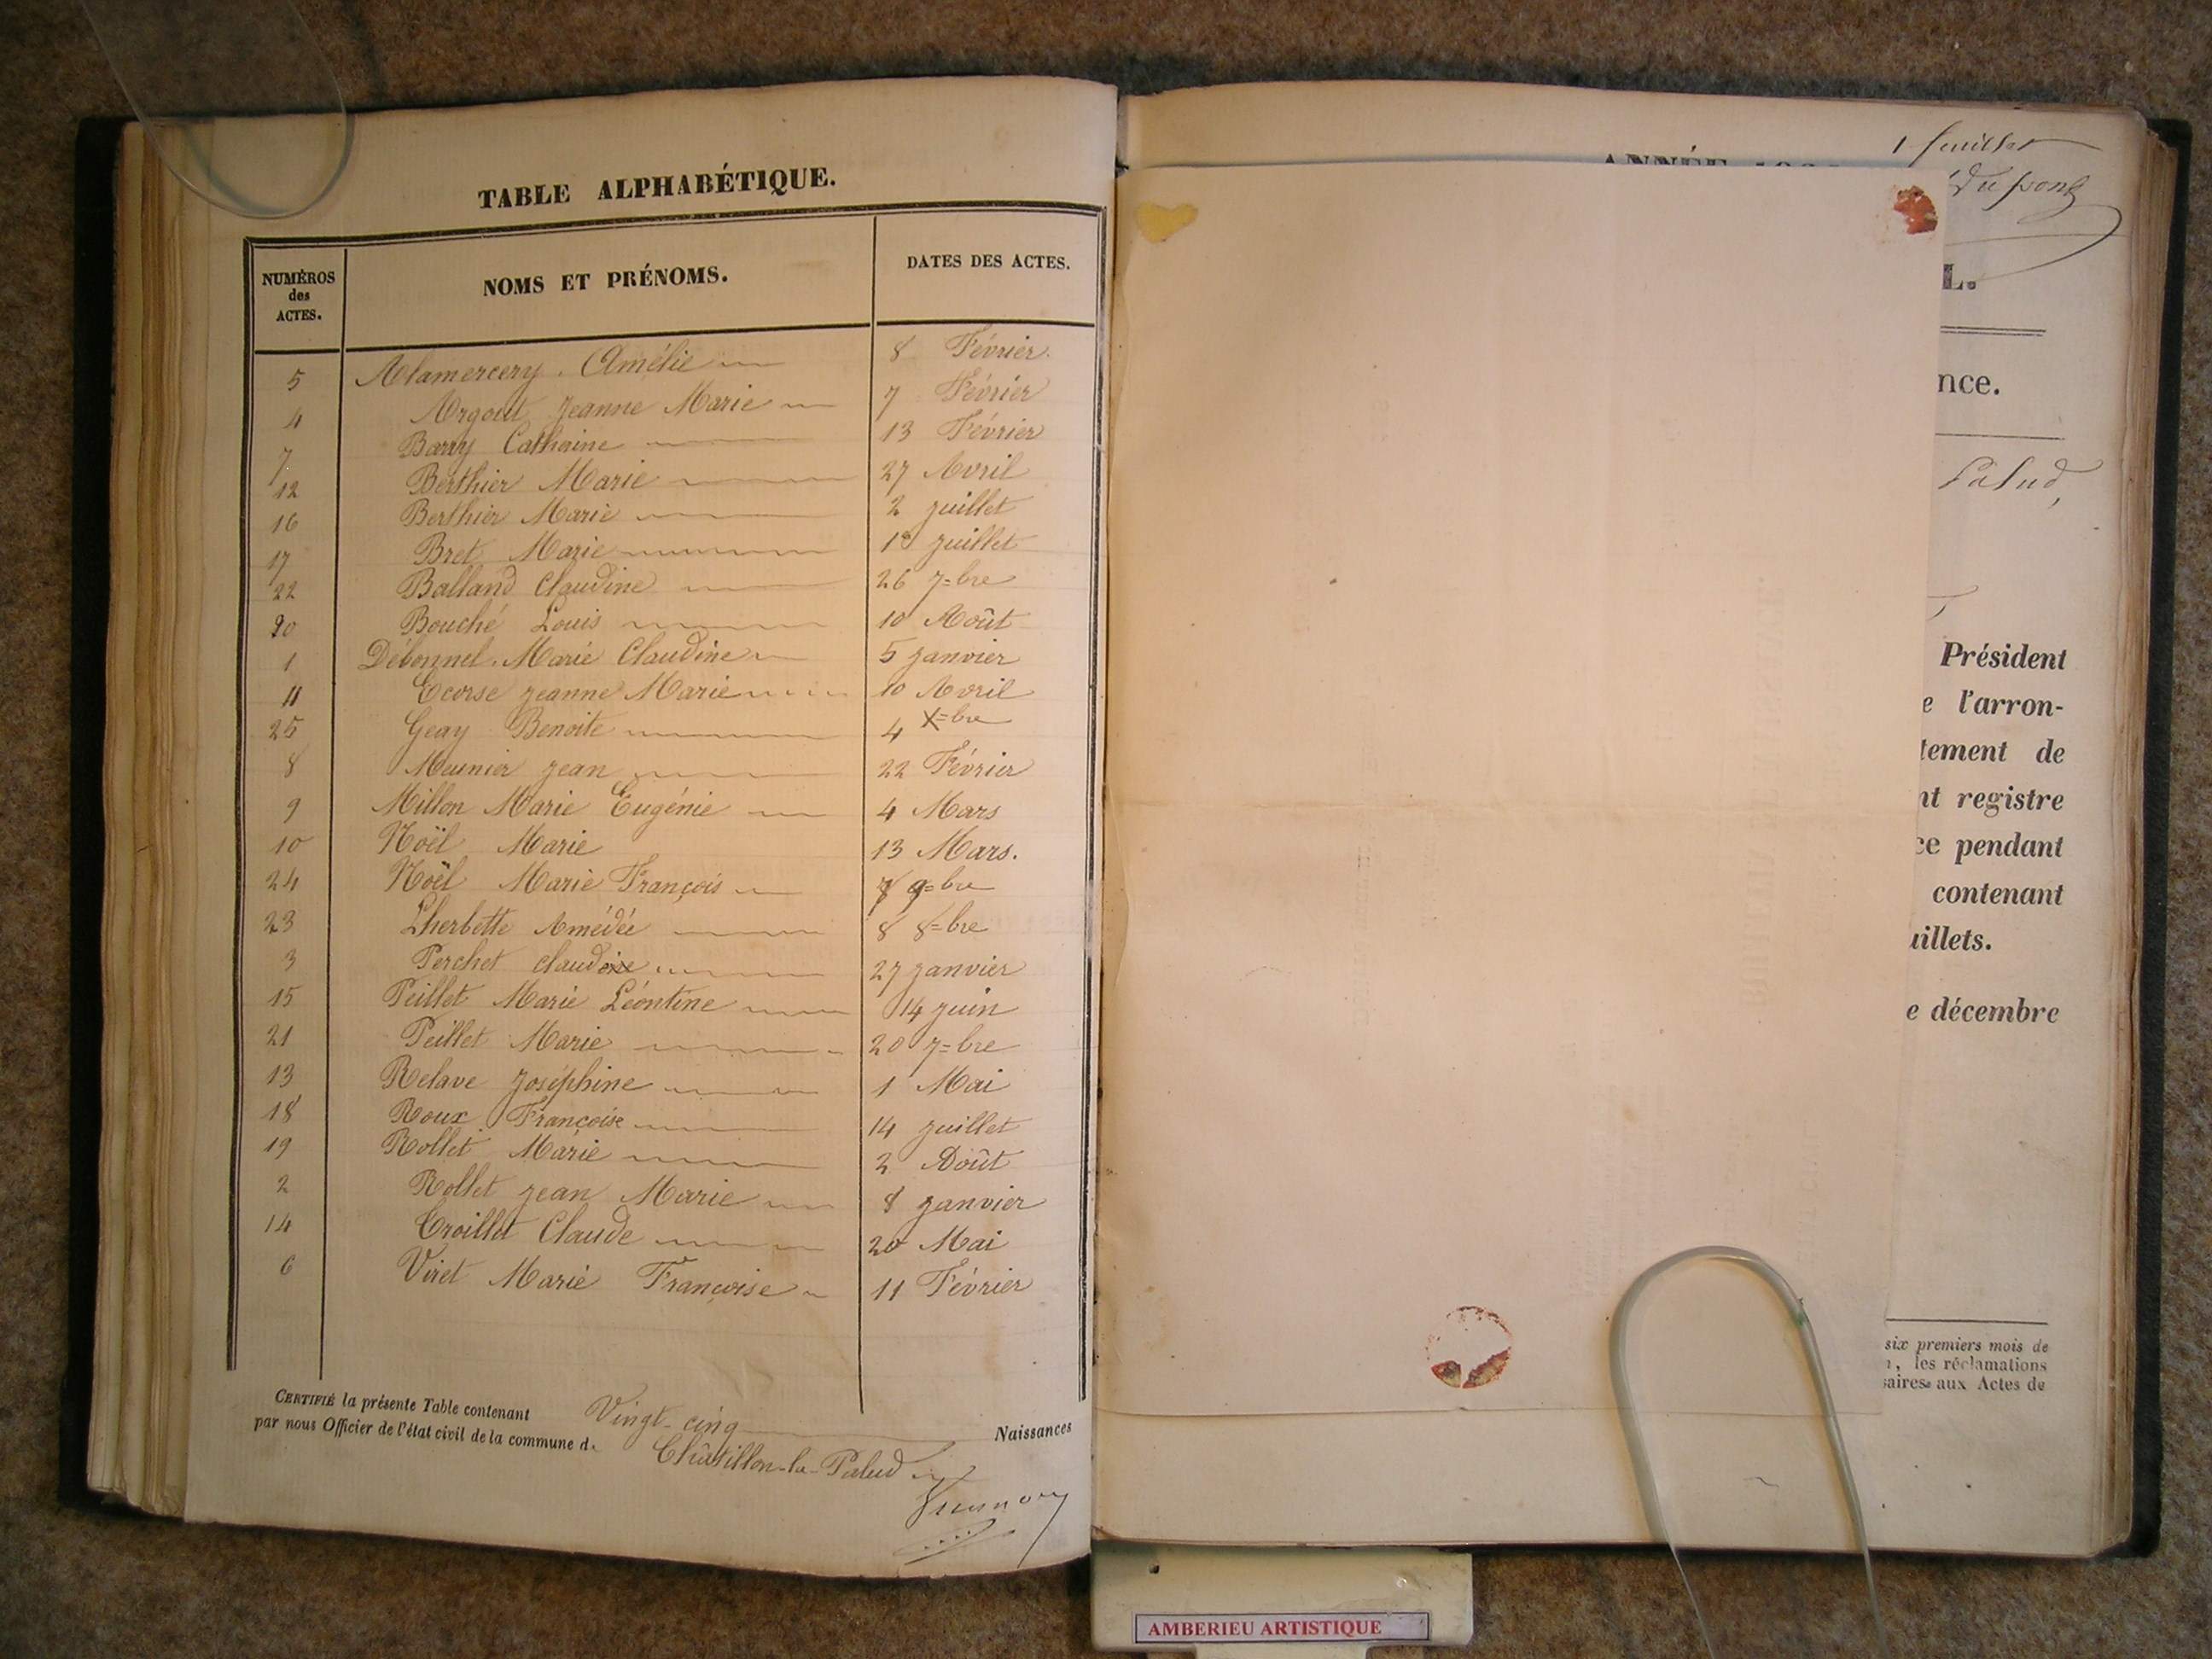 TABLE ALPHABÉTIQUE.
NUMÉROS
des
ACTES.
NOMS ET PRÉNOMS.
DATES DES ACTES.
5 Alamercery Amélie 8 Février
4 Argout Jeanne Marie 7 Février
7 Barry Catherine 13 Février
12 Berthier Marie 27 Avril
16 Berthier Marie 2 juillet
17 Bret Marie juillet
22 Balland Claudine 26 7=bre
20 Bouché Louis 10 Août
1 Débonnel Marie Claudine 5 janvier
11 Ecorse Jeanne Marie 10 Avril
25 Geay Benoite 4 X=bre
8 Meunier Jean 22 Février
9 Millon Marie Eugénie 4 Mars
10 Noël Marie 13 Mars.
24 Noël Marie François 9=bre
23 Lherbette Amédée 8 8=bre
3 Perchet 27 janvier
15 Peillet Marie Léontine 14 juin
21 Peillet Marie 20 7=bre
13 Relave Joséphine 1 Mai
18 Roux Françoise 14 juillet
19 Rollet Marie 2 Août
2 Rollet Jean Marie 8 janvier
14 Croillet Claude 20 Mai
6 Viret Marie Françoise 11 Février
CERTIFIÉ la présente Table contenant Vingt-cinq Naissances
par nous Officier de l'état civil de la commune de Châtillon-la-Palud
1 feuillet
Dupont
ANNÉE
L.
nce.
Palud,
Président
e l'arron-
tement de
nt registre
ce pendant
contenant
uillets.
e décembre
six premiers mois de
n, les réclamations
saires aux Actes de
AMBERIEU ARTISTIQUE